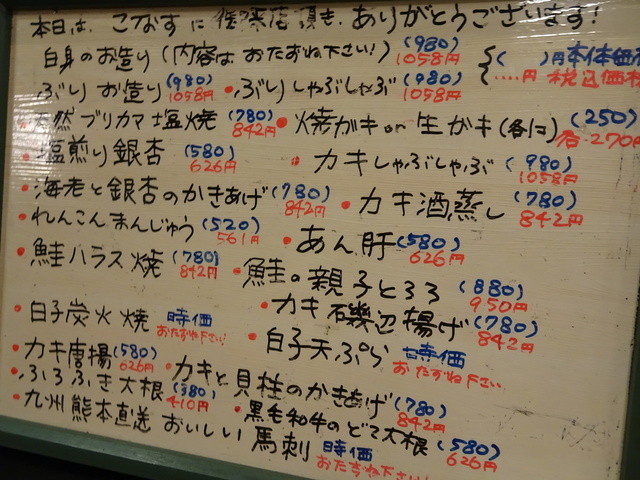 本日は、こなすに御来店頂き、ありがとうございます!
白身のお造り(内容はおたずね下さい!)(980) 1058円
( )円本体価格
……円 税込価格
ぶりお造り(980) 1058円
・ぶりしゃぶしゃぶ(980) 1058円
天然ブリカマ塩焼(780) 842円
・焼ガキor生ガキ(各に)(250) 各270円
塩煎り銀杏(580) 626円
・カキしゃぶしゃぶ(980) 1058円
・海老と銀杏のかきあげ(780) 842円
・カキ酒蒸し(780) 842円
・れんこんまんじゅう(520) 561円
・あん肝(580) 626円
・鮭ハラス焼(780) 842円
・鮭の親子とろろ(880) 950円
・白子炭火焼 時価 おたずね下さい!
・カキ磯辺揚げ(780) 842円
・白子天ぷら 時価 おたずね下さい
・カキ唐揚(580) 626円
・カキと貝柱のかきあげ(780) 842円
・ふろふき大根(380) 410円
・黒毛和牛のどて大根(580) 626円
・九州熊本直送おいしい馬刺 時価 おたずね下さい!